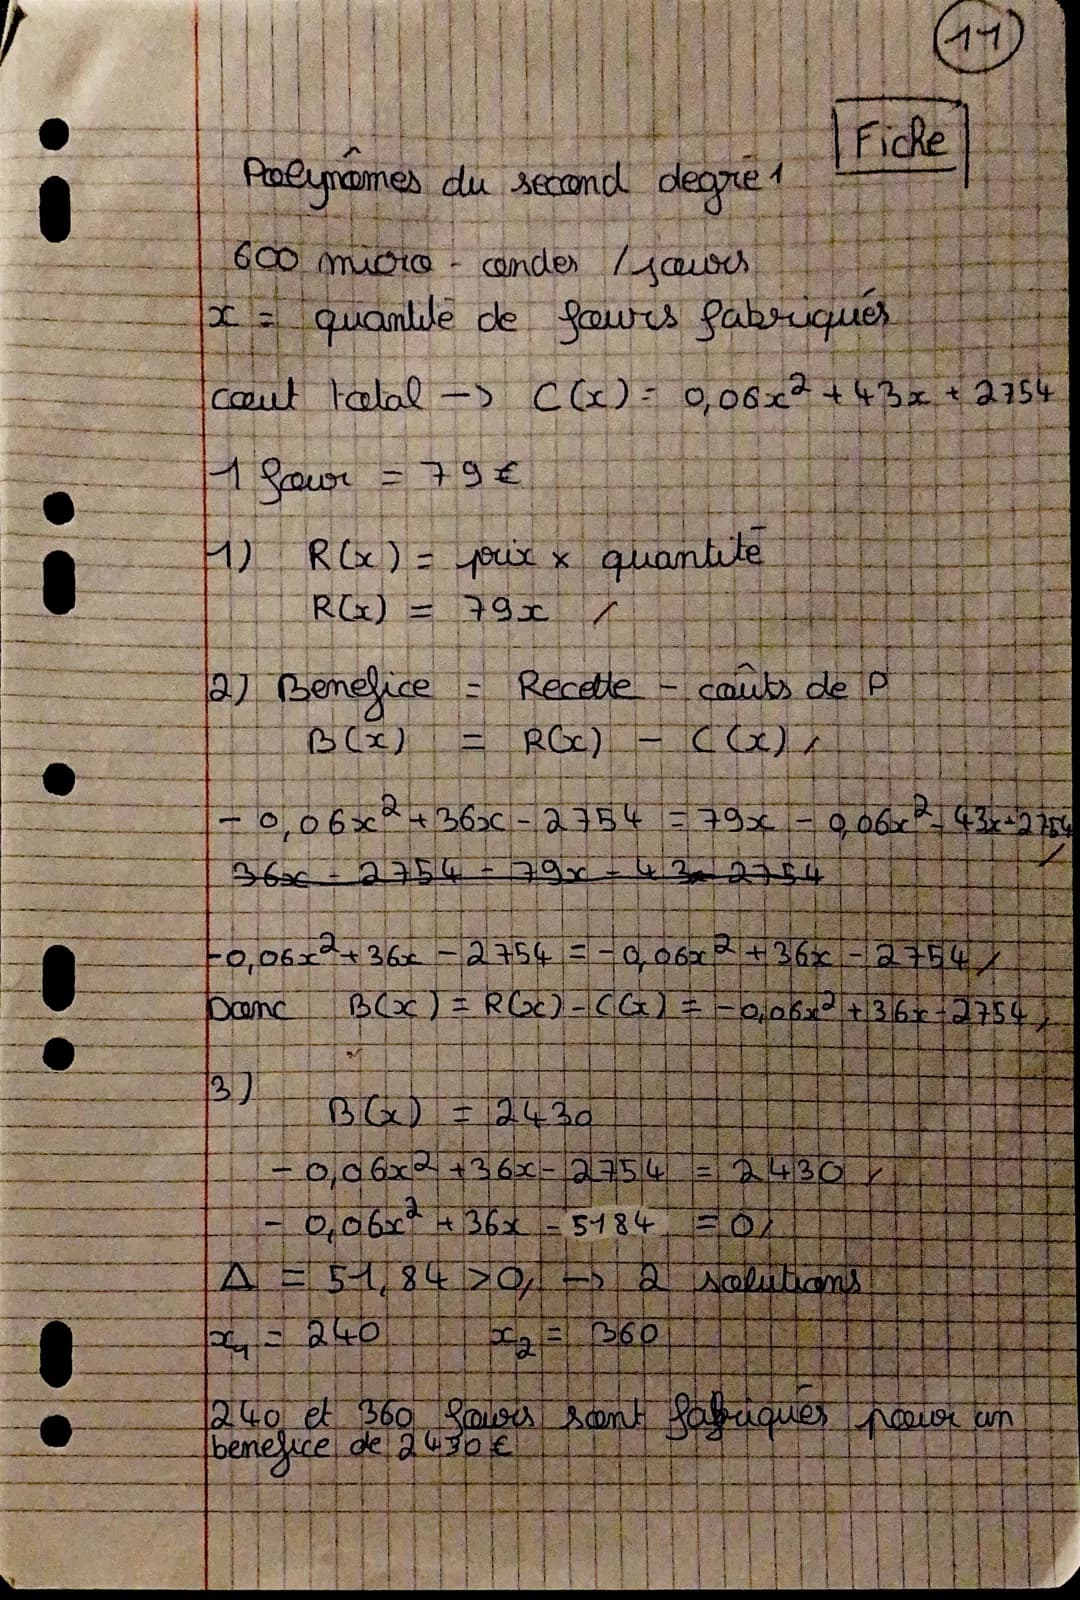 11
Fiche
Polynômes du second degré 1
600 micro-ondes / jours
x = quantité de fours fabriqués
cout total -> C(x) = 0,06x² + 43x + 2754
1 four = 79€
1) R(x) = prix x quantité
R(x) = 79x /
2) Benefice = Recette - coûts de P
B(x) = R(x) - C(x) /
- 0,06x² + 36x - 2754 = 79x - 0,06x² - 43x - 2754 /
36x - 2754 = 79x - 43x 2754
-0,06x² + 36x - 2754 = -0,06x² + 36x - 2754 /
Donc B(x) = R(x) - C(x) = -0,06x² + 36x - 2754 /
3)
B(x) = 2430
- 0,06x² + 36x - 2754 = 2430 /
- 0,06x² + 36x - 5184 = 0 /
Δ = 51,84 > 0, -> 2 solutions
x₁ = 240 x₂ = 360
240 et 360 fours sont fabriqués pour un
benefice de 2430€